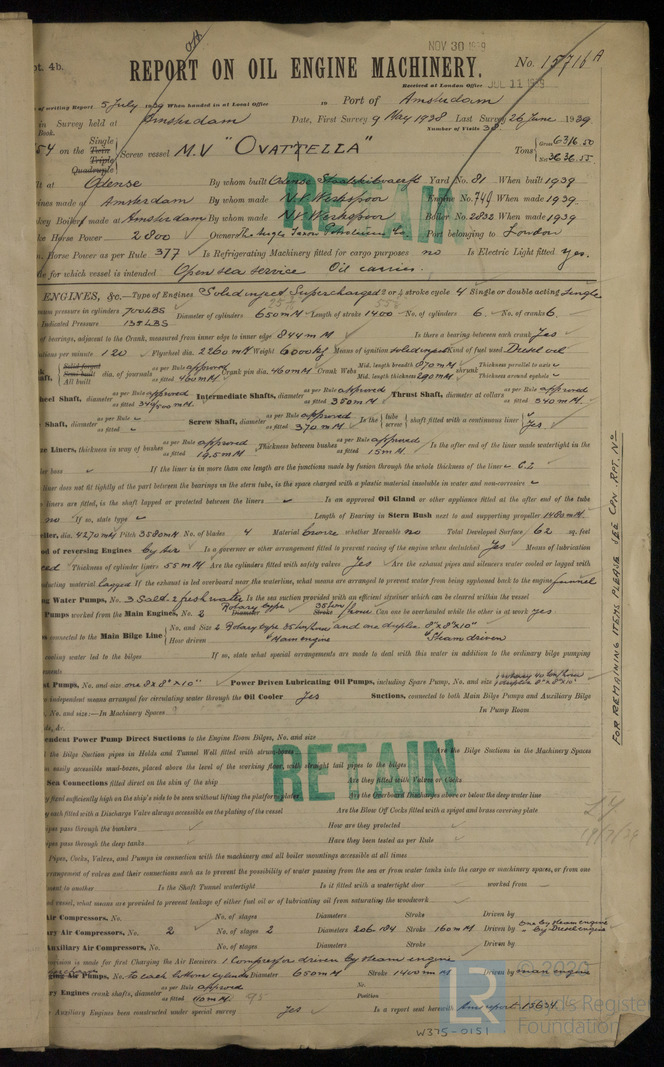 NOV 30 1939
pt. 4b.
REPORT ON OIL ENGINE MACHINERY.
No. 15716 A
Received at London Office JUL 11 1939
of writing Report 5 July 1939 When handed in at Local Office 19 Port of Amsterdam
in Survey held at Amsterdam Date, First Survey 9 May 1938 Last Survey 26 June 1939
Book. Number of Visits 38
54 on the Single Twin Triple Quadruple Screw vessel M.V "OVATELLA" Tons Gross 6316.50 Net 3636.55
lt at Odense By whom built Odense Yard No. 81 When built 1939
ines made at Amsterdam By whom made N.V. Werkspoor Engine No. 749 When made 1939.
key Boiler made at Amsterdam By whom made N.V. Werkspoor Boiler No. 2833 When made 1939
ke Horse Power 2800 Owners The Anglo Saxon Petroleum Co. Port belonging to London
. Horse Power as per Rule 377 Is Refrigerating Machinery fitted for cargo purposes no Is Electric Light fitted yes.
de for which vessel is intended Open sea service Oil carrier.
ENGINES, &c.—Type of Engines Solid inject Supercharged 2 or 4 stroke cycle 4 Single or double acting Single
mum pressure in cylinders 700 LBS Diameter of cylinders 650 mM Length of stroke 1400 No. of cylinders 6 No. of cranks 6
Indicated Pressure 134 LBS
of bearings, adjacent to the Crank, measured from inner edge to inner edge 844 mM Is there a bearing between each crank Yes
utions per minute 120 Flywheel dia. 2260 mM Weight 6000 kg Means of ignition solid inject Kind of fuel used Diesel oil
haft, Solid forged Semi built All built dia. of journals as per Rule approved as fitted 400 mM Crank pin dia. 460 mM Crank Webs Mid. length breadth 870 mM Mid. length thickness 290 mM shrunk Thickness parallel to axis Thickness around eyehole
heel Shaft, diameter as per Rule approved as fitted Intermediate Shafts, diameter as per Rule approved as fitted 380 mM Thrust Shaft, diameter at collars as per Rule approved as fitted 340 mM
Shaft, diameter as per Rule as fitted Screw Shaft, diameter as per Rule approved as fitted 370 mM Is the tube screw shaft fitted with a continuous liner Yes
ze Liners, thickness in way of bushes as per Rule approved as fitted 19.5 mM Thickness between bushes as per Rule approved as fitted 15 mM Is the after end of the liner made watertight in the
ler boss If the liner is in more than one length are the junctions made by fusion through the whole thickness of the liner
liner does not fit tightly at the part between the bearings in the stern tube, is the space charged with a plastic material insoluble in water and non-corrosive
liners are fitted, is the shaft lapped or protected between the liners Is an approved Oil Gland or other appliance fitted at the after end of the tube
no If so, state type Length of Bearing in Stern Bush next to and supporting propeller 1480 mM
eller, dia. 4270 mM Pitch 3580 mM No. of blades 4 Material bronze whether Moveable no Total Developed Surface 62 sq. feet
od of reversing Engines by air Is a governor or other arrangement fitted to prevent racing of the engine when declutched yes Means of lubrication
ced Thickness of cylinder liners 55 mM Are the cylinders fitted with safety valves Yes Are the exhaust pipes and silencers water cooled or lagged with
nducting material lagged If the exhaust is led overboard near the waterline, what means are arranged to prevent water from being syphoned back to the engine funnel
ng Water Pumps, No. 3 Salt 2 fresh water Is the sea suction provided with an efficient strainer which can be cleared within the vessel
Pumps worked from the Main Engines, No. 2 Rotary type Diameter Stroke 35 ton/hour Can one be overhauled while the other is at work yes
s connected to the Main Bilge Line No. and Size 2 Rotary type 35 ton/hour and one duplex 8"x8"x10"
How driven Main engine Steam driven
ooling water led to the bilges If so, state what special arrangements are made to deal with this water in addition to the ordinary bilge pumping
ements
st Pumps, No. and size one 8x8"x10" Power Driven Lubricating Oil Pumps, including Spare Pump, No. and size
independent means arranged for circulating water through the Oil Cooler Yes Suctions, connected to both Main Bilge Pumps and Auxiliary Bilge
, No. and size:—In Machinery Spaces In Pump Room
ds, &c.
endent Power Pump Direct Suctions to the Engine Room Bilges, No. and size
l the Bilge Suction pipes in Holds and Tunnel Well fitted with strum-boxes Are the Bilge Suctions in the Machinery Spaces
easily accessible mud-boxes, placed above the level of the working floor, with straight tail pipes to the bilges
Sea Connections fitted direct on the skin of the ship Are they fitted with Valves or Cocks
y fixed sufficiently high on the ship's side to be seen without lifting the platform plates Are the Overboard Discharges above or below the deep water line
y each fitted with a Discharge Valve always accessible on the plating of the vessel Are the Blow Off Cocks fitted with a spigot and brass covering plate
pes pass through the bunkers How are they protected
pes pass through the deep tanks Have they been tested as per Rule
Pipes, Cocks, Valves, and Pumps in connection with the machinery and all boiler mountings accessible at all times
rrangement of valves and their connections such as to prevent the possibility of water passing from the sea or from water tanks into the cargo or machinery spaces, or from one
ment to another Is the Shaft Tunnel watertight Is it fitted with a watertight door worked from
od vessel, what means are provided to prevent leakage of either fuel oil or of lubricating oil from saturating the woodwork
Air Compressors, No. No. of stages Diameters Stroke Driven by
ry Air Compressors, No. 2 No. of stages 2 Diameters 206-184 Stroke 160 mM Driven by one by steam engine " by Diesel engine
Auxiliary Air Compressors, No. No. of stages Diameters Stroke Driven by
rovision is made for first Charging the Air Receivers 1 Compressor driven by steam engine
ging Air Pumps, No. 6 each bottom cylinder Diameter 650 mM Stroke 1400 mM Driven by main engine
ry Engines crank shafts, diameter as per Rule approved as fitted 110 mM No. Position
Auxiliary Engines been constructed under special survey Yes Is a report sent herewith Ams report 15634
RETAIN
RETAIN
FOR REMAINING ITEMS PLEASE SEE CON. RPT. No
LY
19/7/39
W375-0151
© 2020
LR
Lloyd's Register
Foundation